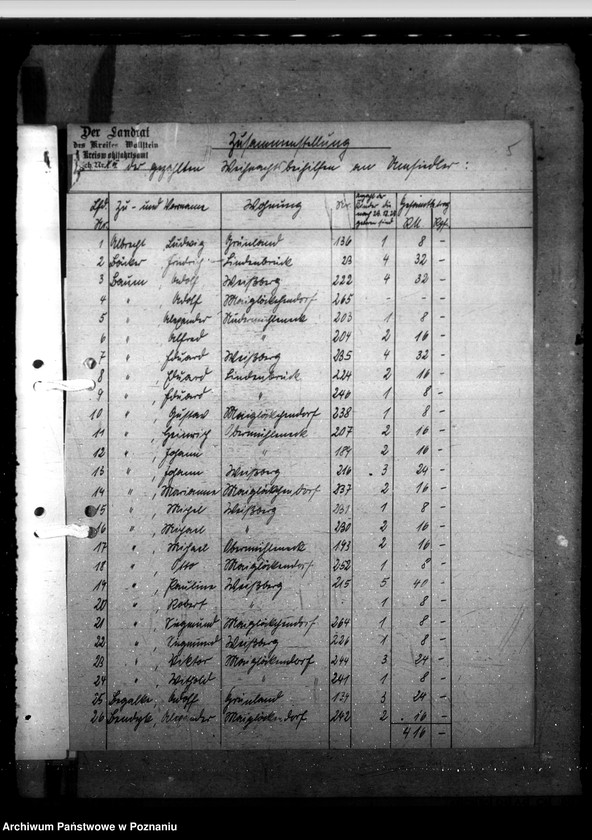 5
Der Landrat
des Kreises Wollstein
Kreiswohlfahrtsamt
Zusammenstellung
der gezahlten Weihnachtsbeihilfen an Umsiedler:
Lfd. Nr. Zu- und Vorname Wohnung Nr. Anzahl der Kinder die nach geboren sind Gesamtbetrag RM Rpf.
1 Albrecht Ludwig Grünland 136 1 8 -
2 Böcker Friedrich Lindenbrück 23 4 32 -
3 Baum, Adolf Weißberg 222 4 32 -
4 " , Adolf Maiglöckchendorf 265 - - -
5 " , Alexander Niedermühleneck 203 1 8 -
6 " , Alfred " 204 2 16 -
7 " , Eduard Weißberg 235 4 32 -
8 " , Eduard Lindenbrück 224 2 16 -
9 " , Eduard " 246 1 8 -
10 " , Gustav Maiglöckchendorf 238 1 8 -
11 " , Heinrich Obermühleneck 207 2 16 -
12 " , Johann " 184 2 16 -
13 " , Johann Weißberg 216 3 24 -
14 " , Marianne Maiglöckchendorf 237 2 16 -
15 " , Michel Weißberg 231 1 8 -
16 " , Michael " 230 2 16 -
17 " , Michael Obermühleneck 143 2 16 -
18 " , Otto Maiglöckendorf 252 1 8 -
19 " , Pauline Weißberg 215 5 40 -
20 " , Robert " 1 8 -
21 " , Siegmund Maiglöckchendorf 264 1 8 -
22 " , Siegmund Weißberg 226 1 8 -
23 " , Viktor Maiglöckendorf 244 3 24 -
24 " , Witold " 241 1 8 -
25 Begalke, Adolf Grünland 3 24 -
26 Alexander Maiglöckendorf 242 2 16 -
416 -
Archiwum Państwowe w Poznaniu